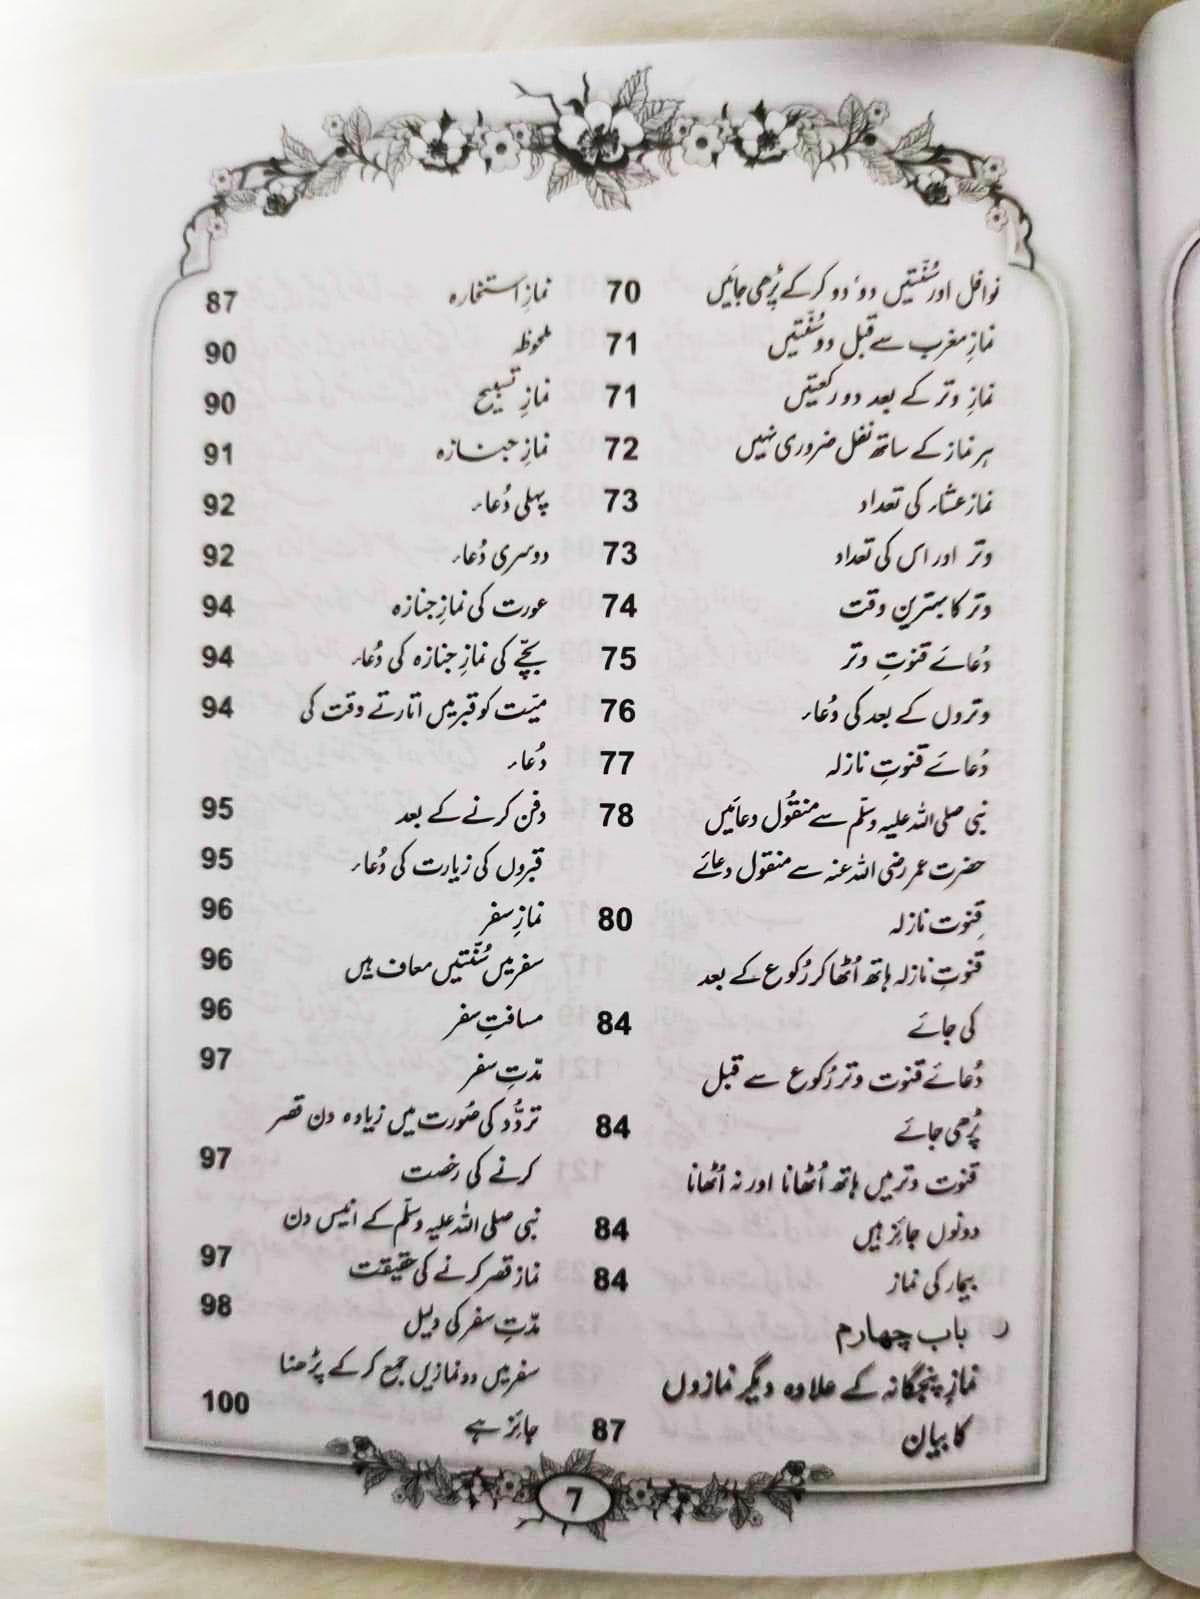 نوافل اور سُنّتیں دو، دو کر کے پڑھی جائیں 70
نمازِ مغرب سے قبل دو سُنّتیں 71
نمازِ وتر کے بعد دو رکعتیں 71
ہر نماز کے ساتھ نفل ضروری نہیں 72
نماز عشاء کی تعداد 73
وتر اور اس کی تعداد 73
وتر کا بہترین وقت 74
دُعائے قنوتِ وتر 75
وتروں کے بعد کی دُعاء 76
دُعائے قنوتِ نازلہ 77
نبی صلی اللہ علیہ وسلّم سے منقُول دعائیں 78
حضرت عمر رضی اللہ عنہ سے منقول دعائے
قنوت نازلہ 80
قنوتِ نازلہ ہاتھ اُٹھا کر رُکوع کے بعد
کی جائے 84
دُعائے قنوت وتر رُکوع سے قبل
پڑھی جائے 84
قنوت وتر میں ہاتھ اُٹھانا اور نہ اُٹھانا
دونوں جائز ہیں 84
بیمار کی نماز 84
باب چهارم
نمازِ پنجگانہ کے علاوہ دیگر نمازوں
کا بیان 87
نمازِ استخارہ 87
ملحوظہ 90
نمازِ تسبیح 90
نمازِ جنازہ 91
پہلی دُعاء 92
دوسری دُعاء 92
عورت کی نمازِ جنازہ 94
بچّے کی نمازِ جنازہ کی دُعاء 94
میّت کو قبر میں اتارتے وقت کی 94
دُعاء
دفن کرنے کے بعد 95
قبروں کی زیارت کی دُعاء 95
نمازِ سفر 96
سفر میں سُنّتیں معاف ہیں 96
مسافتِ سفر 96
مدّتِ سفر 97
تردُّد کی صُورت میں زیادہ دن قصر
کرنے کی رخصت 97
نبی صلی اللہ علیہ وسلّم کے انیس دن
نماز قصر کرنے کی حقیقت 97
مدّتِ سفر کی دلیل 98
سفر میں دو نمازیں جمع کر کے پڑھنا
جائز ہے 100
7